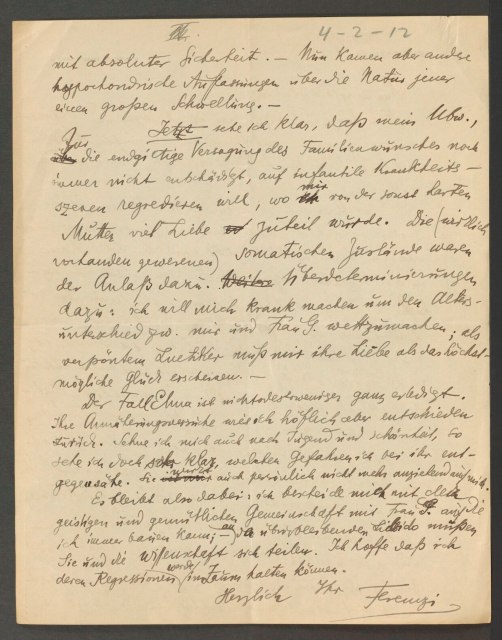 III. 4-2-12
mit absoluter Sicherheit. — Nun kamen aber andre
hypochondrische Auffassungen über die Natur jener
einen großen Schwellung. —
Jetzt sehe ich klar, daß mein Ubw.,
für die endgiltige Versagung des Familienwunsches noch
immer nicht entschädigt, auf infantile Krankheits-
szenen regredieren will, wo mir von der sonst harten
Mutter viel Liebe zuteil wurde. Die (wirklich
vorhanden gewesenen) somatischen Zustände waren
der Anlaß dazu. Weitere Überdeterminierungen
dazu: ich will mich krank machen um den Alters-
unterschied zw. mir und Frau G. wettzumachen; als
muß mir ihre Liebe als das höchst-
mögliche Glück erscheinen. —
Der Fall Elma ist nichtsdestoweniger ganz erledigt.
Ihre Annäherungsversuche wies ich höflich aber entschieden
zurück. Sehne ich mich auch nach Jugend und Schönheit, so
sehe ich doch klar, welchen Gefahren ich bei ihr ent-
gegensähe. Sie wirkt auch persönlich nicht mehr anziehend auf mich.
Es bleibt also dabei: ich bescheide mich mit der
geistigen und gemütlichen Gemeinschaft mit Frau G. auf die
ich immer bauen kann; — an der übrigbleibenden Libido müssen
Sie und die Wissenschaft sich teilen. Ich hoffe daß ich
deren Regressionen werde im Zaum halten können.
Herzlich Ihr Ferenczi